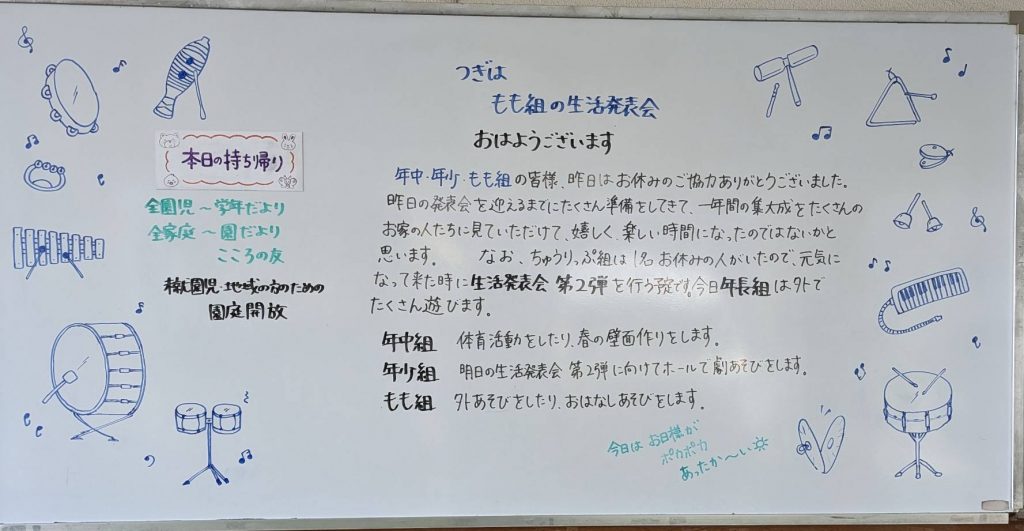 つぎは
もも組の生活発表会
おはようございます
本日の持ち帰り
全園児～学年だより
全家庭～園だより
こころの友
園児・地域の方のための
園庭開放
年中・年少・もも組の皆様、昨日はお休みのご協力ありがとうございました。
昨日の発表会を迎えるまでにたくさん準備をしてきて、一年間の集大成をたくさんの
お家の人たちに見ていただけて、嬉しく、楽しい時間になったのではないかと
思います。 なお、ちゅうりっぷ組は1名お休みの人がいたので、元気に
なって来た時に生活発表会 第2弾を行う予定です。今日年長組は外で
たくさん遊びます。
年中組 体育活動をしたり、春の壁面作りをします。
年少組 明日の生活発表会 第2弾に向けてホールで劇あそびをします。
もも組 外あそびをしたり、おはなしあそびをします。
今日は お日様が
ポカポカ
あったか～い